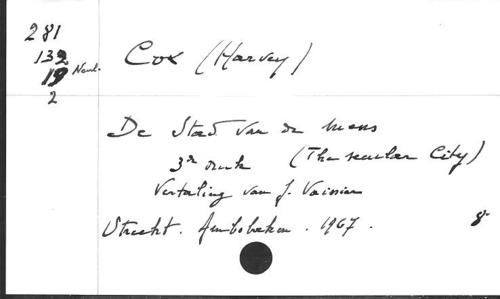 281
132
19 Neerl.
2
Cox (Harvey)
De Stad van de mens
3de druk (The secular City)
Vertaling van J.
Utrecht. Amboboeken. 1967. 8°